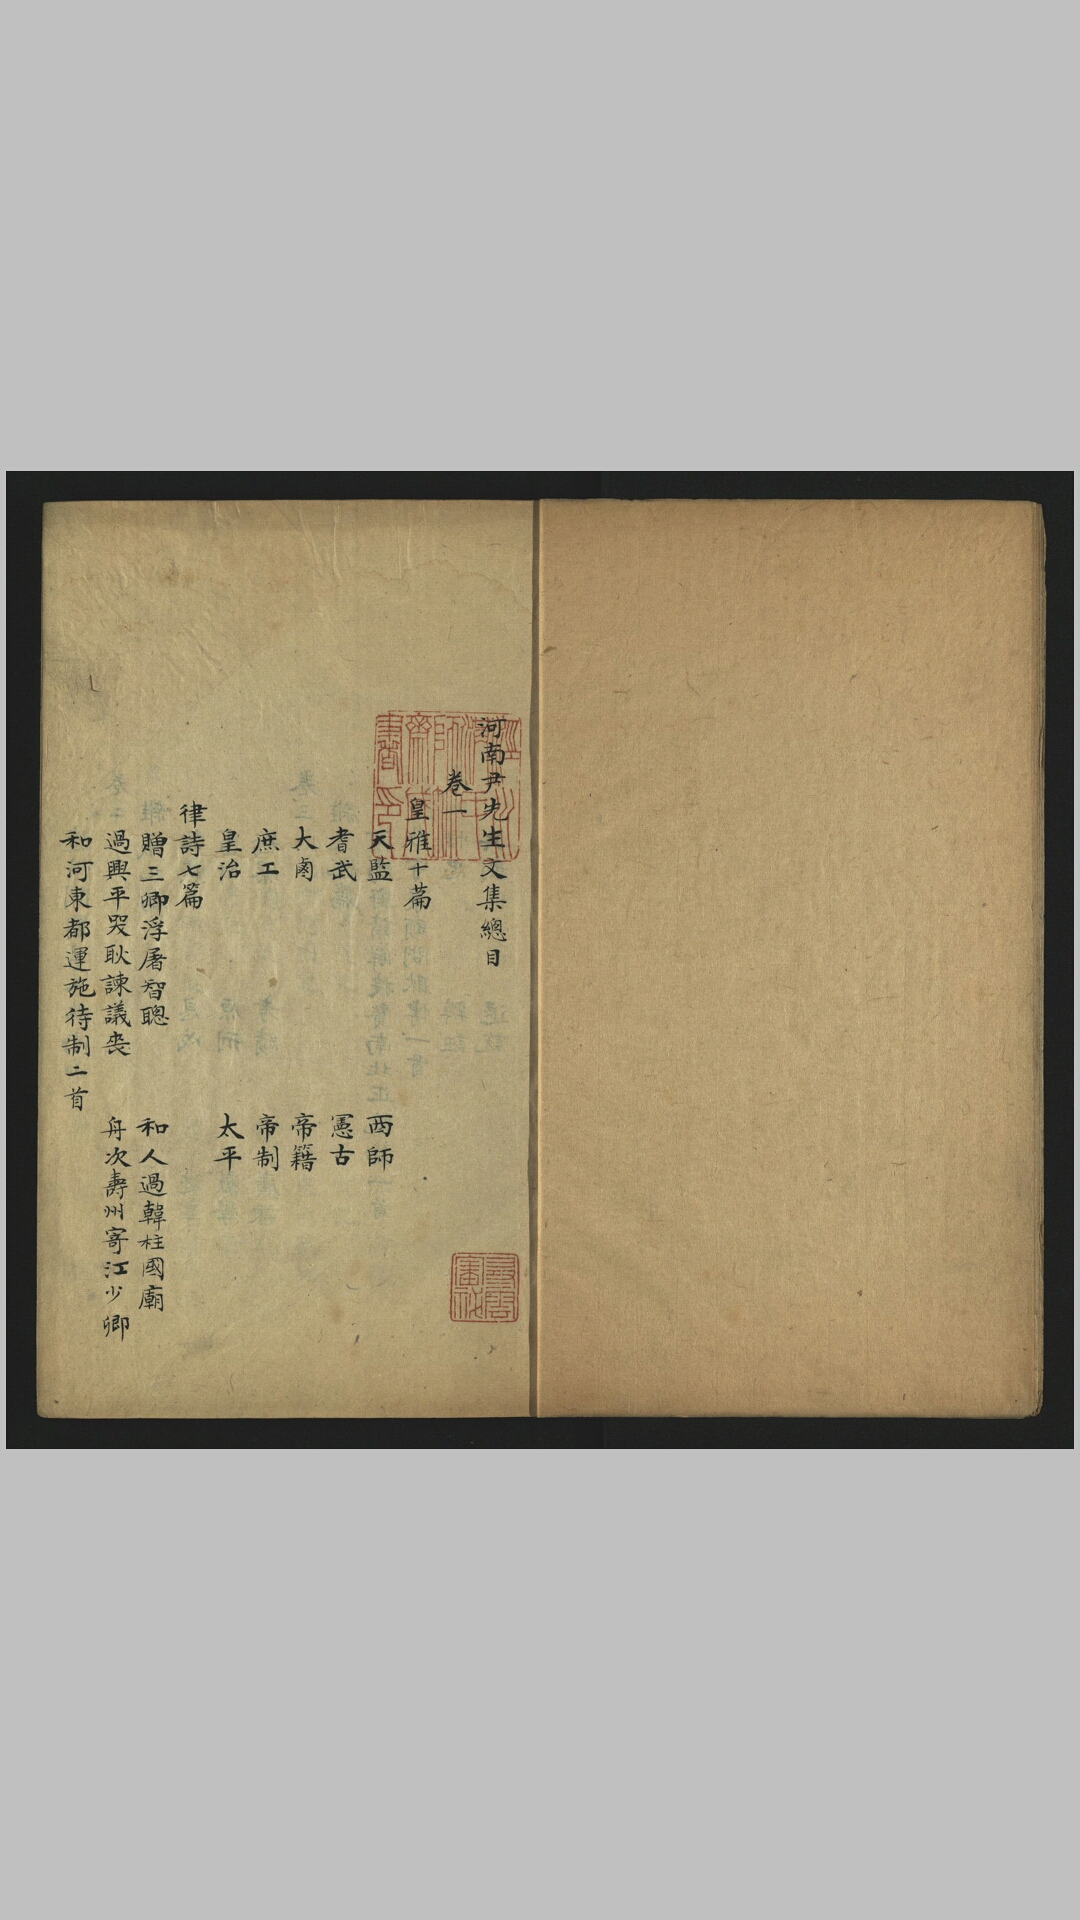 河南尹先生文集總目
卷一
皇雅十篇
天監 西師
耆武 憲古
大鹵 帝籍
庶工 帝制
皇治 太平
律詩七篇
贈三卿浮屠智聰 和人過韓柱國廟
過興平哭耿諫議喪 舟次壽州寄江少卿
和河東都運施待制二首